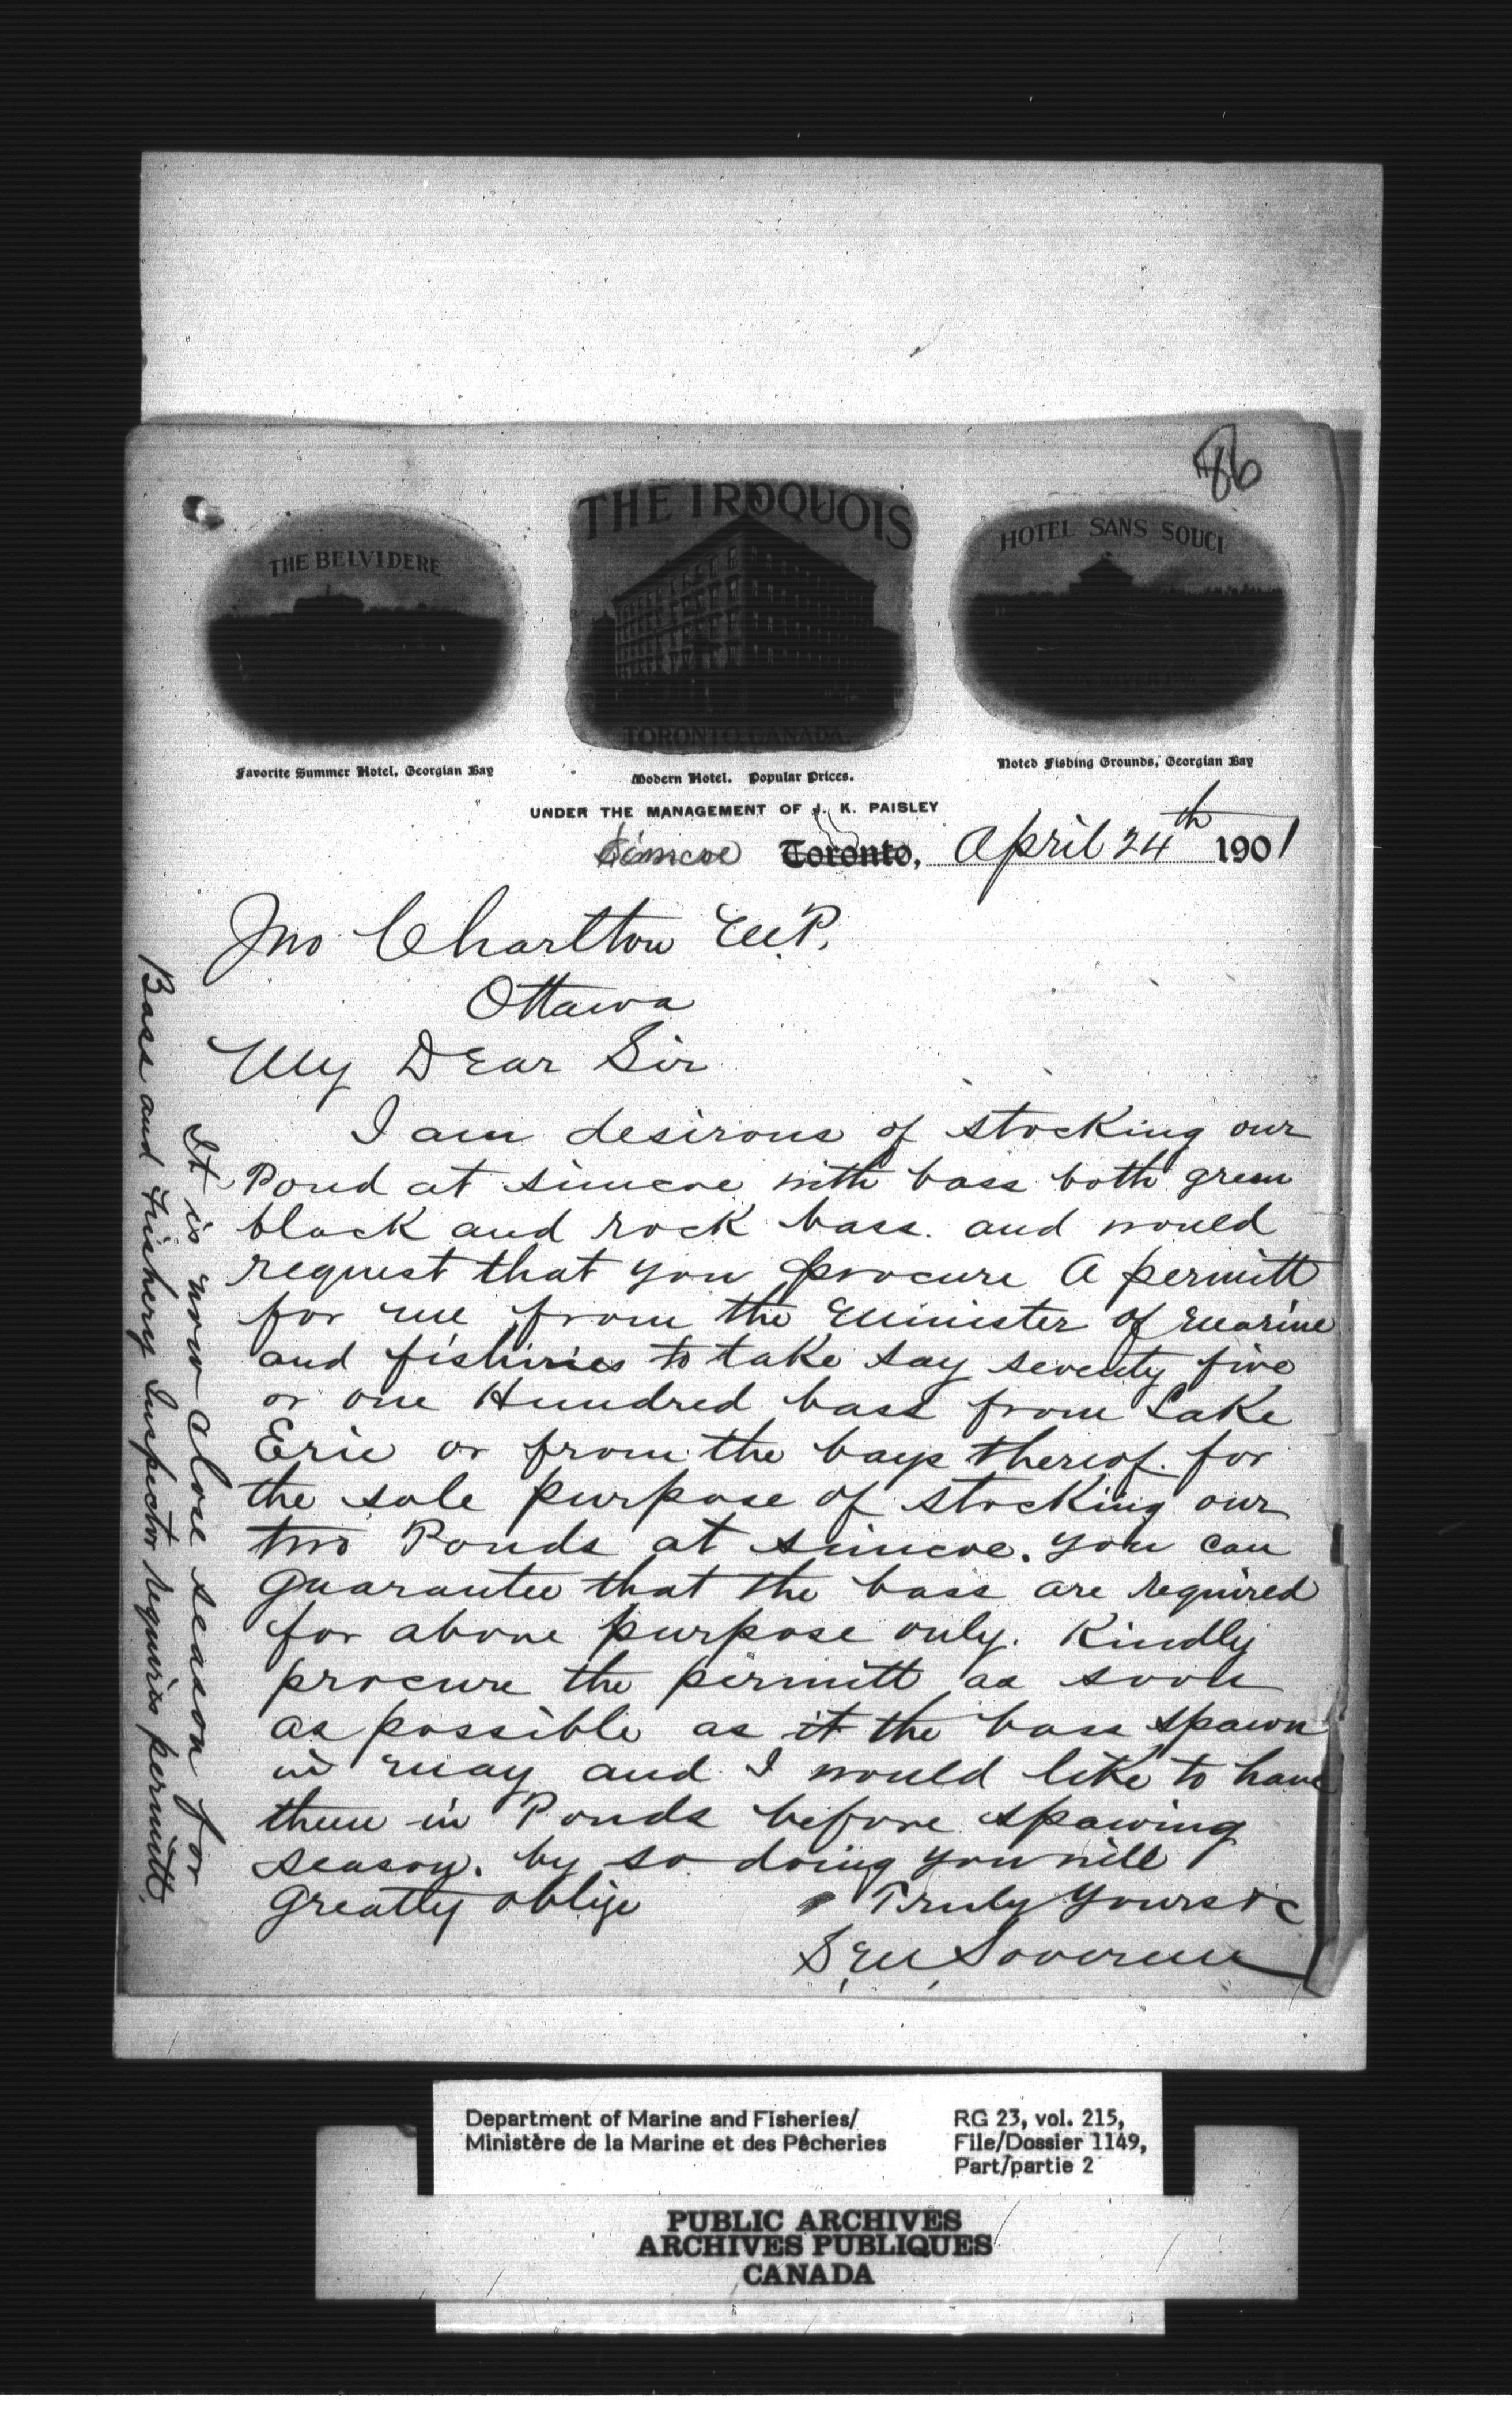 86
THE BELVIDERE
PARRY SOUND
THE IROQUOIS
TORONTO, CANADA.
HOTEL SANS SOUCI
MOON RIVER P.O.
Favorite Summer Hotel, Georgian Bay
Modern Hotel. Popular Prices.
Noted Fishing Grounds, Georgian Bay
UNDER THE MANAGEMENT OF J. K. PAISLEY
Simcoe Toronto, April 24th 1901
Jno Charlton M.P.
Ottawa
My Dear Sir
I am desirous of stocking our
Pond at simcoe with bass both green
black and rock bass. and would
request that you procure A permitt
for me from the Minister of Marine
and fishiries to take say seventy five
or one Hundred bass from Lake
Erie or from the bays thereof. for
the sole purpose of stocking our
two Ponds at simcoe. you can
guarantee that the bass are required
for above purpose only. Kindly
procure the permitt as soon
as possible as it the bass spawn
in may and I would like to have
them in Ponds before spawing
season. by so doing you will
greatly oblige
Truly Yours &c
S. M. Sovereen
It is now close season for
Bass and Fishery Inspector requires permitt.
Department of Marine and Fisheries/
Ministère de la Marine et des Pêcheries
RG 23, vol. 215,
File/Dossier 1149,
Part/partie 2
PUBLIC ARCHIVES
ARCHIVES PUBLIQUES
CANADA